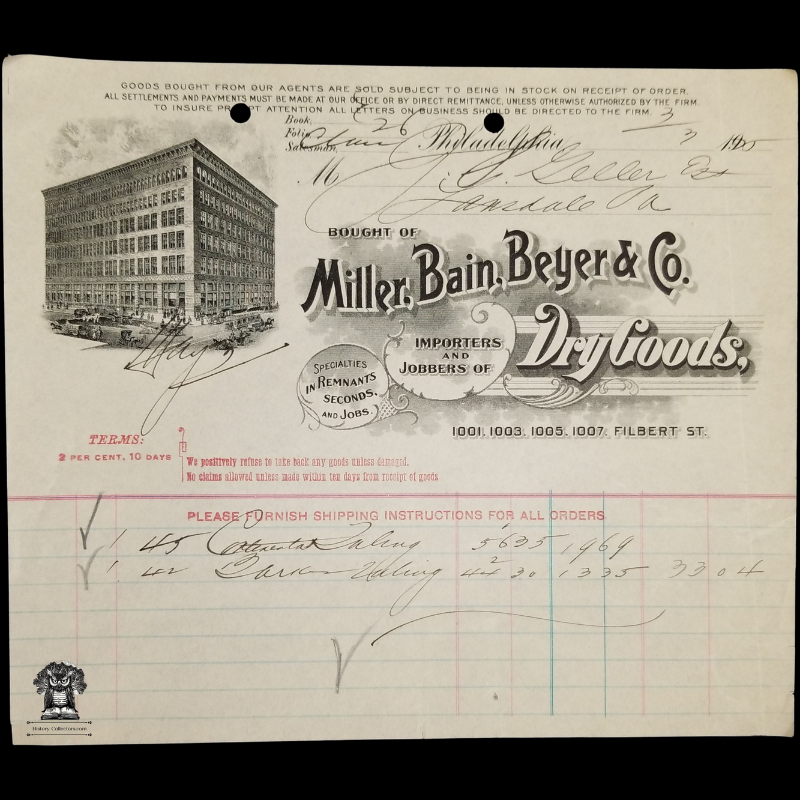 GOODS BOUGHT FROM OUR AGENTS ARE SOLD SUBJECT TO BEING IN STOCK ON RECEIPT OF ORDER.
ALL SETTLEMENTS AND PAYMENTS MUST BE MADE AT OUR OFFICE OR BY DIRECT REMITTANCE, UNLESS OTHERWISE AUTHORIZED BY THE FIRM.
TO INSURE PROMPT ATTENTION ALL LETTERS ON BUSINESS SHOULD BE DIRECTED TO THE FIRM.
Book,
Folio, 26
Salesman, Philadelphia, 3/3 1905
M J. G. Geller Est
Lansdale Pa
BOUGHT OF
Miller, Bain, Beyer & Co.
IMPORTERS
AND
JOBBERS OF
Dry Goods,
SPECIALTIES
IN REMNANTS
SECONDS,
AND JOBS.
1001. 1003. 1005. 1007. FILBERT ST.
TERMS:
2 PER CENT, 10 DAYS
We positively refuse to take back any goods unless damaged.
No claims allowed unless made within ten days from receipt of goods
PLEASE FURNISH SHIPPING INSTRUCTIONS FOR ALL ORDERS
1 45 Continental 5635 1969
1 42 44² 30 1335 3304
History-Collectors.com